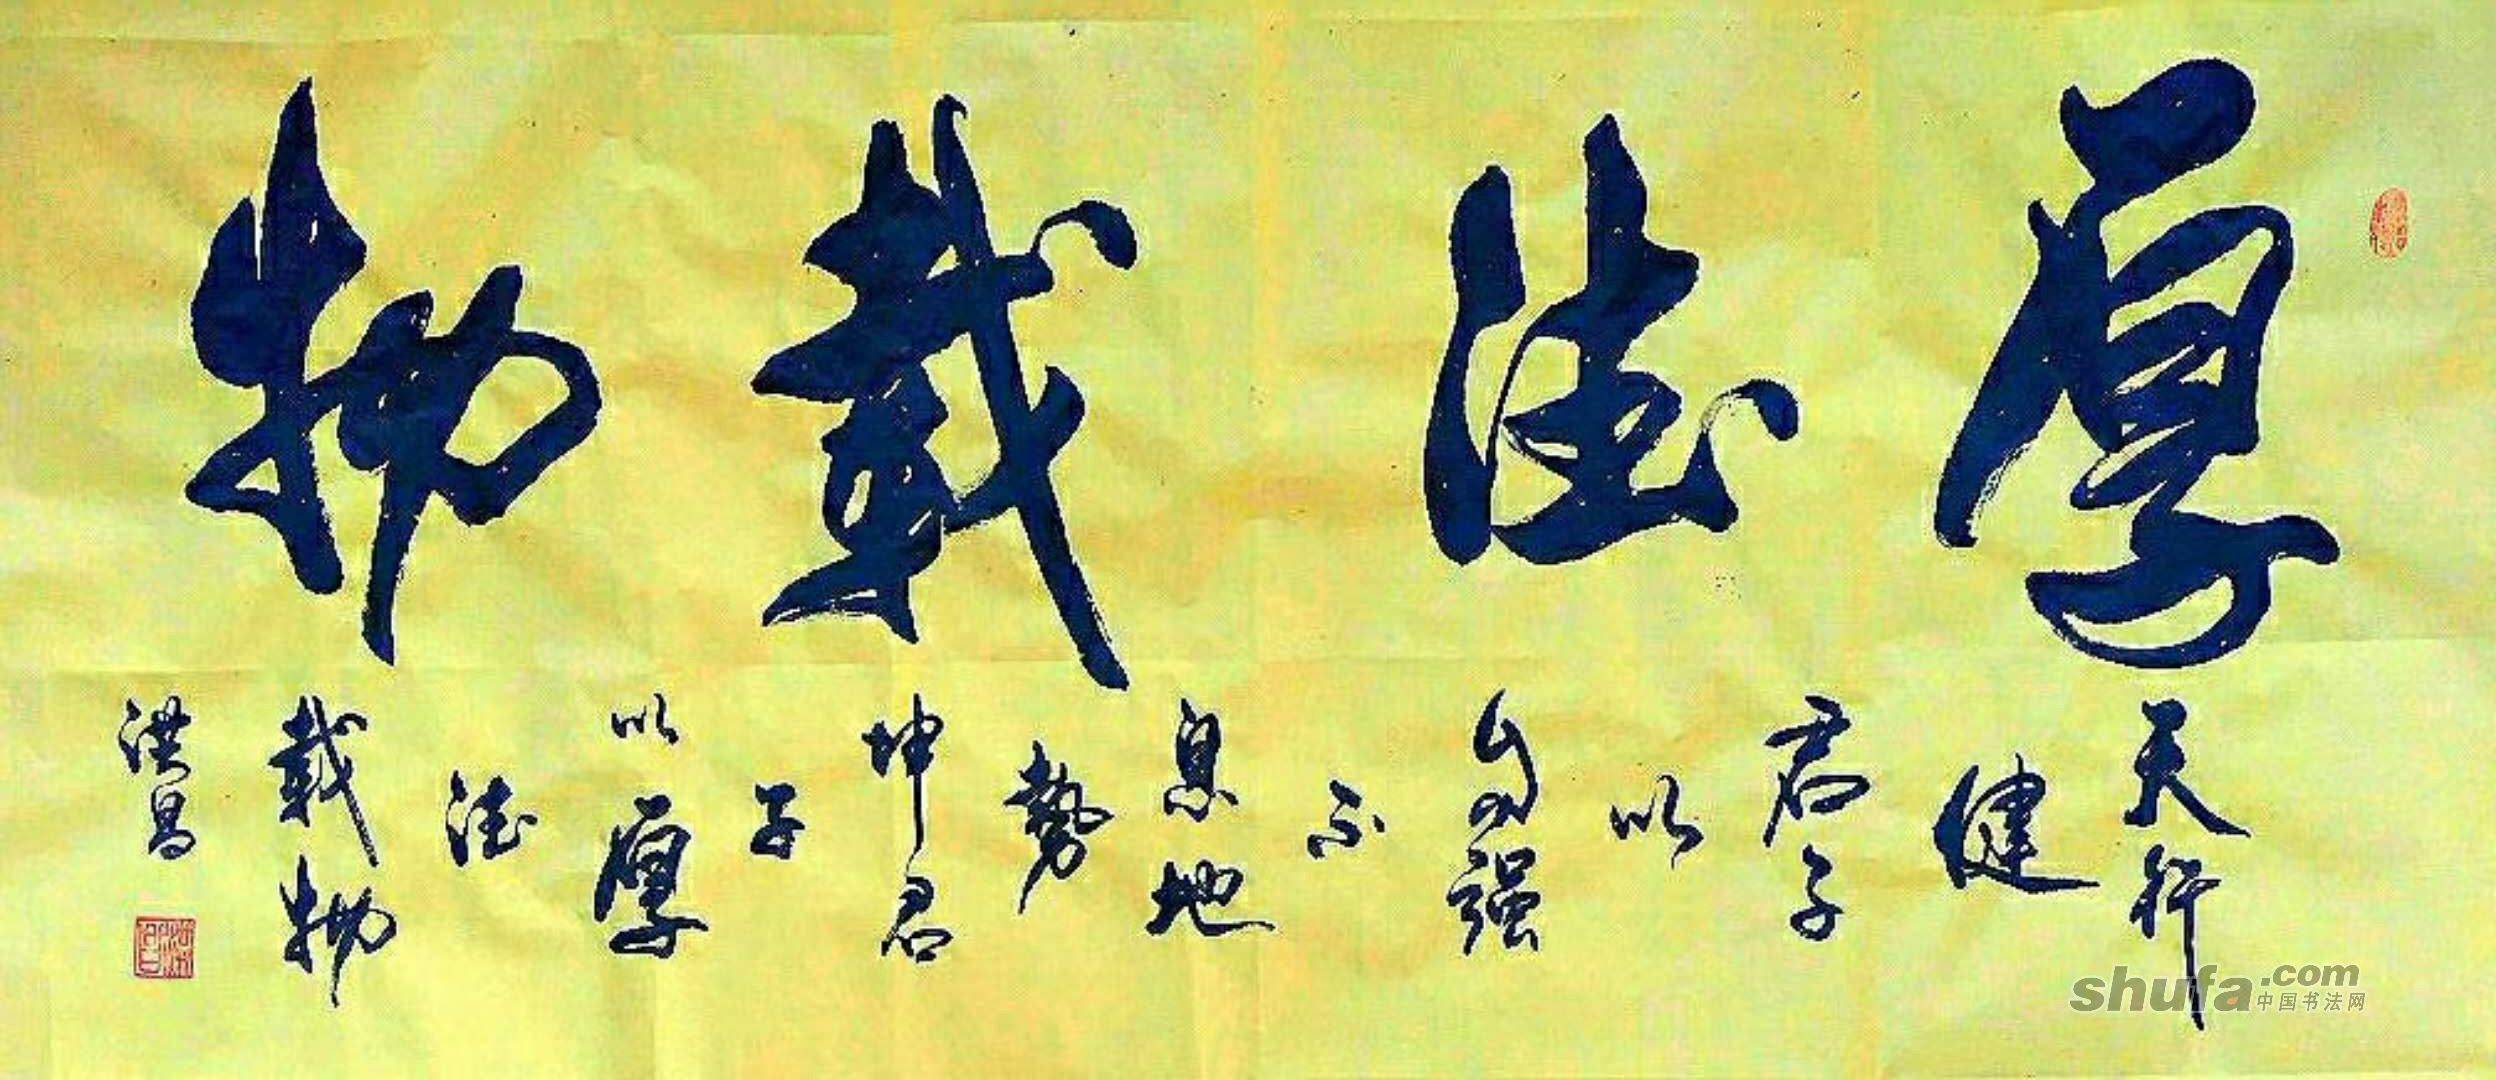 厚德載物
天行
健
君子
以
自强
不
息地
勢
坤君
子
以厚
德
載物
洪昌
shufa.com
中国书法网